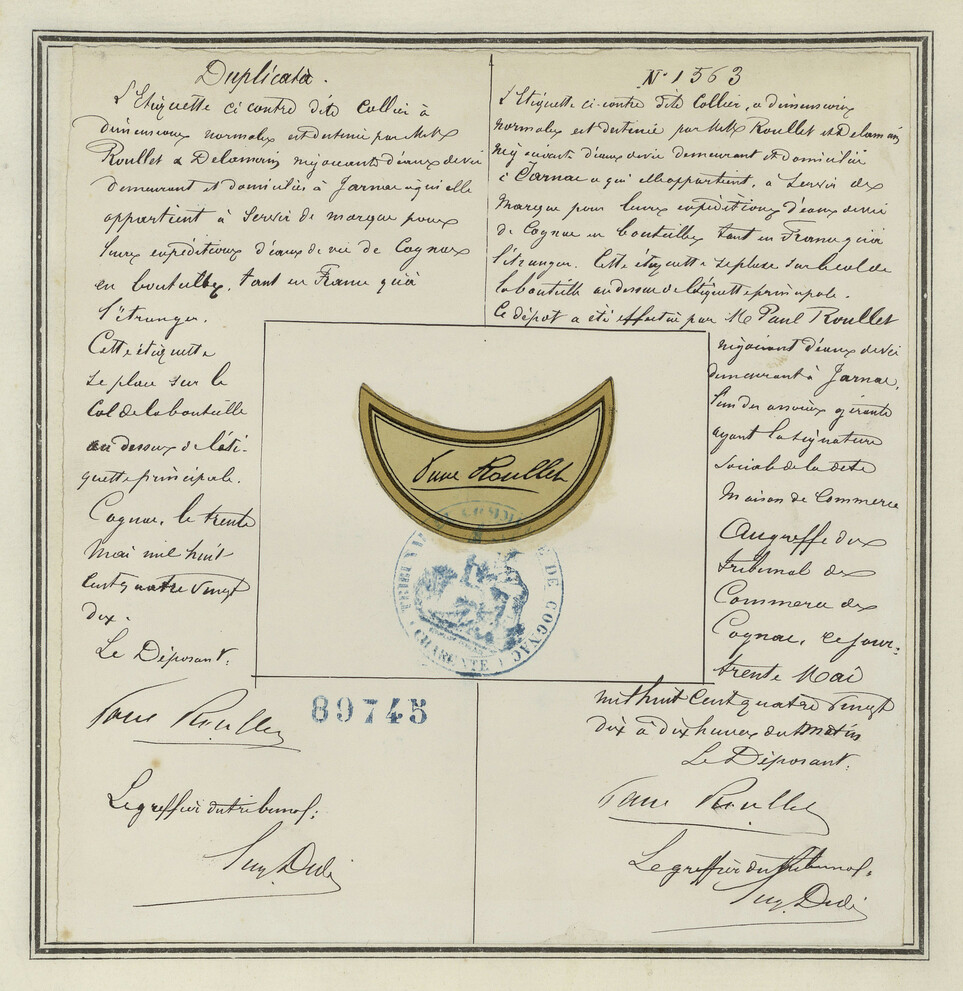 Duplicata.
L'Etiquette ci contre dite Collier à
dimensions normales est destinée par MM
Roullet & Delamain négociants d'eaux de vie
demeurant et domiciliés à Jarnac à qui elle
appartient à servir de marque pour
leurs expéditions d'eaux de vie de Cognac
en bouteilles, tant en France qu'à
l'étranger.
Cette étiquette
se place sur le
Col de la bouteille
au dessus de l'éti-
quette principale.
Cognac, le trente
Mai mil huit
cent quatre vingt
dix.
Le Déposant:
Paul Roullet
Le greffier du tribunal:
N° 1563
L'Etiquette ci-contre dite Collier, à dimensions
normales est destinée par MM Roullet et Delamain
négociants d'eaux de vie demeurant et domiciliés
à Jarnac à qui elle appartient, à servir de
Marque pour leurs expéditions d'eaux de vie
de Cognac en bouteilles tant en France qu'à
l'étranger. Cette étiquette se place sur le col de
la bouteille au dessus de l'étiquette principale.
Ce dépôt a été effectué par M Paul Roullet
négociant d'eaux de vie
demeurant à Jarnac,
l'un des associés gérants
ayant la signature
sociale de la dite
Maison de Commerce
Au greffe du
tribunal de
Commerce de
Cognac, ce jour
trente Mai
mil huit cent quatre vingt
dix à dix heures du matin
Le Déposant:
Paul Roullet
Le greffier du tribunal:
Paul Roullet
TRIBUNAL DE COMMERCE DE COGNAC
CHARENTE
89745